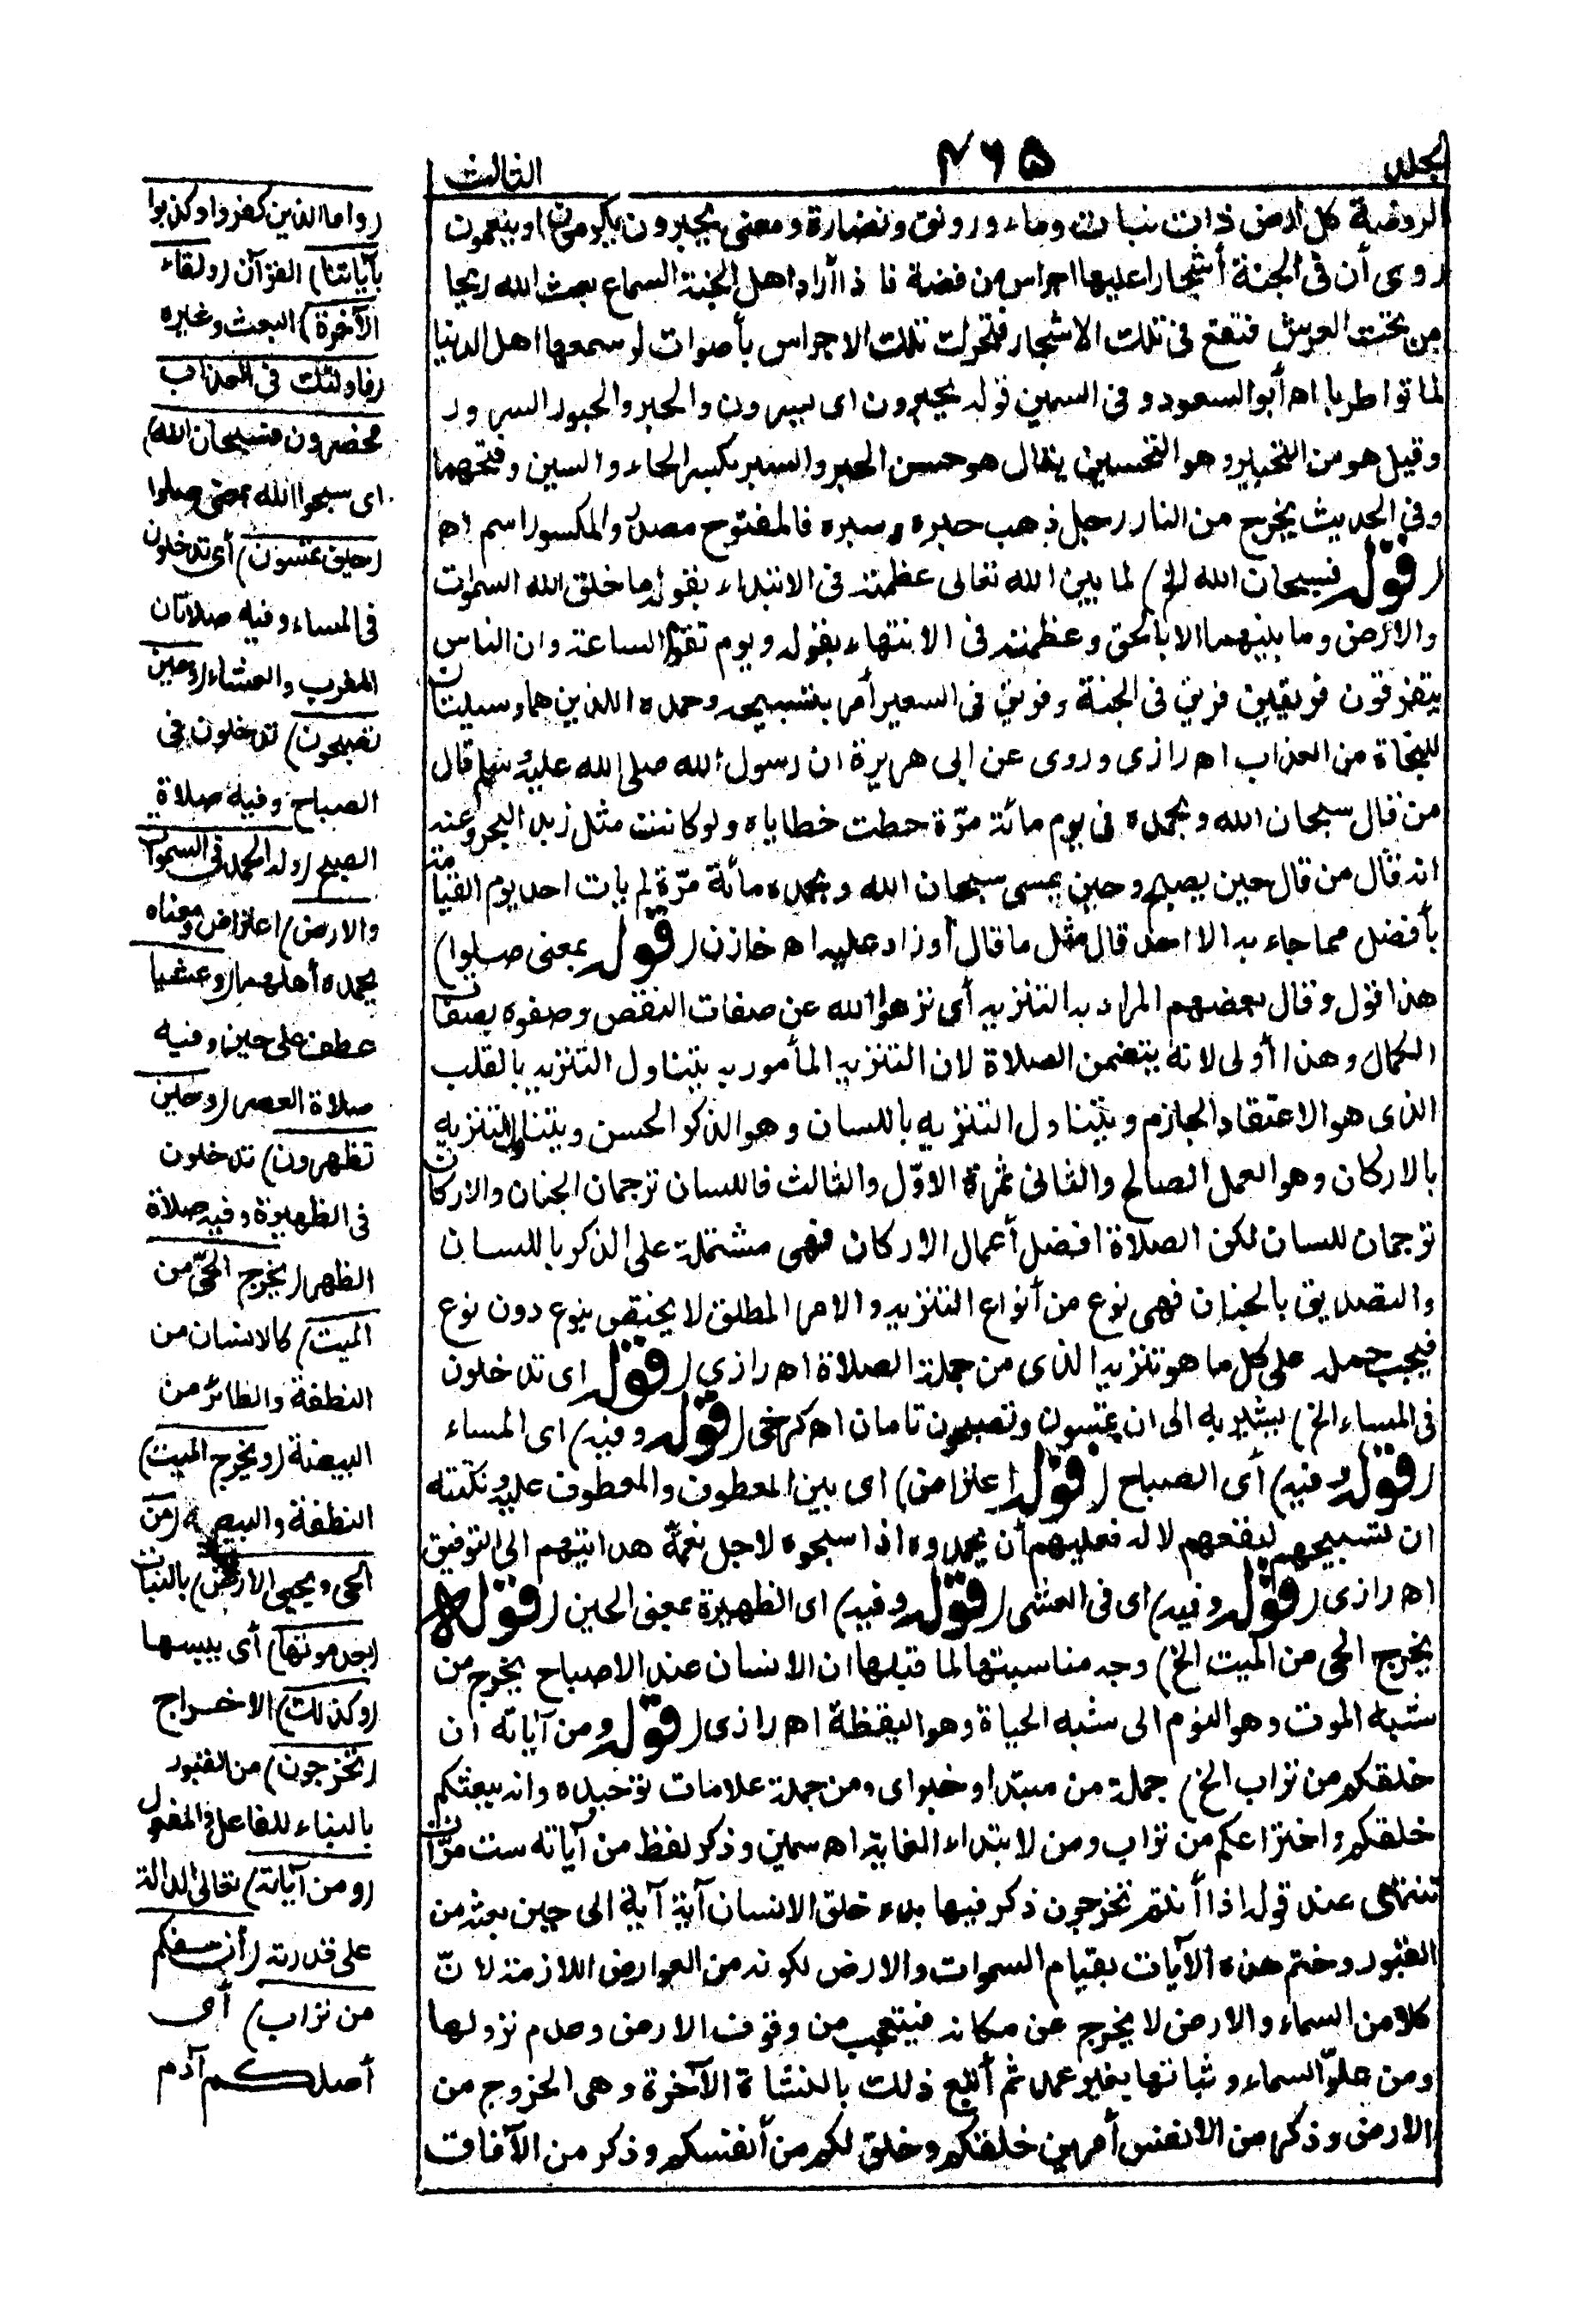 الجلد
٤٦٥
الثالث
الروضة كل أرض ذات نبات وماء ورونق ونضارة ومعنى يحبرون يكرمون او ينعمون
روى أن فى الجنة أشجارا عليها اجراس من فضة فاذا أراد اهل الجنة السماع بعث الله ريحا
من تحت العرش فتقع فى تلك الاشجار فتحرك تلك الاجراس بأصوات لو سمعها اهل الدنيا
لماتوا طربا اه أبوالسعود وفى السمين قوله يحبرون اى يسرون والحبر والحبور السرور
وقيل هو من التحبير وهو التحسين يقال هو حسن الحبر والسبر بكسر الحاء والسين وفتحهما
وفى الحديث يخرج من النار رجل ذهب حبره وسبره فالمفتوح مصدر والمكسور اسم اه
(قوله فسبحان الله الخ) لما بين الله تعالى عظمته فى الابتداء بقوله ما خلق الله السموات
والارض وما بينهما الا بالحق وعظمته فى الانتهاء بقوله ويوم تقوم الساعة وان الناس
يتفرقون فريقين فريق فى الجنة وفريق فى السعير أمر بتسبيحه وحمده اللذين هما وسيلتان
للنجاة من العذاب اه رازى وروى عن ابى هريرة ان رسول الله صلى الله عليه وسلم قال
من قال سبحان الله وبحمده فى يوم مائة مرّة حطت خطاياه ولو كانت مثل زبد البحر وعنه
انه قال من قال حين يصبح وحين يمسى سبحان الله وبحمده مائة مرّة لم يات احد يوم القيامة
بأفضل مما جاء به الا احد قال مثل ما قال أو زاد عليه اه خازن (قوله بمعنى صلوا)
هذا قول وقال بعضهم المراد به التنزيه أى نزهوا الله عن صفات النقص وصفوه بصفات
الكمال وهذا أولى لانه يتضمن الصلاة لان التنزيه المأمور به يتناول التنزيه بالقلب
الذى هو الاعتقاد الجازم ويتناول التنزيه باللسان وهو الذكر الحسن ويتناول التنزيه
بالاركان وهو العمل الصالح والثانى ثمرة الاوّل والثالث فاللسان ترجمان الجنان والاركان
ترجمان للسان لكن الصلاة افضل أعمال الاركان فهى مشتملة على الذكر باللسان
والتصديق بالجنان فهى نوع من أنواع التنزيه والامر المطلق لا يختص بنوع دون نوع
فيجب حمله على كل ما هو تنزيه الذى من جملته الصلاة اه رازى (قوله اى تدخلون
فى المساء الخ) يشير به الى ان تمسون وتصبحون تامان اه كرخى (قوله وفيه) اى المساء
(قوله وفيه) أى الصباح (قوله اعتراض) اى بين المعطوف والمعطوف عليه ونكتته
ان تسبيحهم لنفعهم لا له فعليهم أن يحمدوه اذا سبحوه لاجل نعمة هدايتهم الى التوفيق
اه رازى (قوله وفيه) اى فى العشى (قوله وفيه) اى الظهيرة بمعنى الحين (قوله
يخرج الحى من الميت الخ) وجه مناسبتها لما قبلها ان الانسان عند الاصباح يخرج من
شبه الموت وهو النوم الى شبه الحياة وهو اليقظة اه رازى (قوله ومن آياته ان
خلقكم من تراب الخ) جملة من مبتدا وخبر اى ومن جملة علامات توحيده وانه يبعثكم
خلقكم واختراعكم من تراب ومن لابتداء الغاية اه سمين وذكر لفظ من آياته ست مرّات
تنتهى عند قوله اذا أنتم تخرجون ذكر فيها بدء خلق الانسان آية آية الى حين بعثه من
القبور وختم هذه الآيات بقيام السموات والارض لكونه من العوارض اللازمة لانّ
كلا من السماء والارض لا يخرج عن مكانه فيتعجب من وقوف الارض وعدم نزولها
ومن علوّ السماء وثباتها بغير عمد ثم أتبع ذلك بالنشاة الآخرة وهى الخروج من
الارض وذكر من الانفس أمرين خلقكم وخلق لكم من أنفسكم وذكر من الآفاق
(واما الذين كفروا وكذبوا
بآياتنا) القرآن (ولقاء
الآخرة) البعث وغيره
(فاولئك فى العذاب
محضرون فسبحان الله)
اى سبحوا الله بمعنى صلوا
(حين تمسون) أى تدخلون
فى المساء وفيه صلاتان
المغرب والعشاء (وحين
تصبحون) تدخلون فى
الصباح وفيه صلاة
الصبح (وله الحمد فى السموات
والارض) اعتراض ومعناه
يحمده أهلهما (وعشيا)
عطف على حين وفيه
صلاة العصر (وحين
تظهرون) تدخلون
فى الظهيرة وفيه صلاة
الظهر (يخرج الحىّ من
الميت) كالانسان من
النطفة والطائر من
البيضة (ويخرج الميت)
النطفة والبيضة (من
الحى ويحيى الارض) بالنبات
(بعد موتها) أى يبسها
(وكذلك) الاخراج
(تخرجون) من القبور
بالبناء للفاعل والمفعول
(ومن آياته) تعالى الدالة
على قدرته (أن خلقكم
من تراب) أى
أصلكم آدم